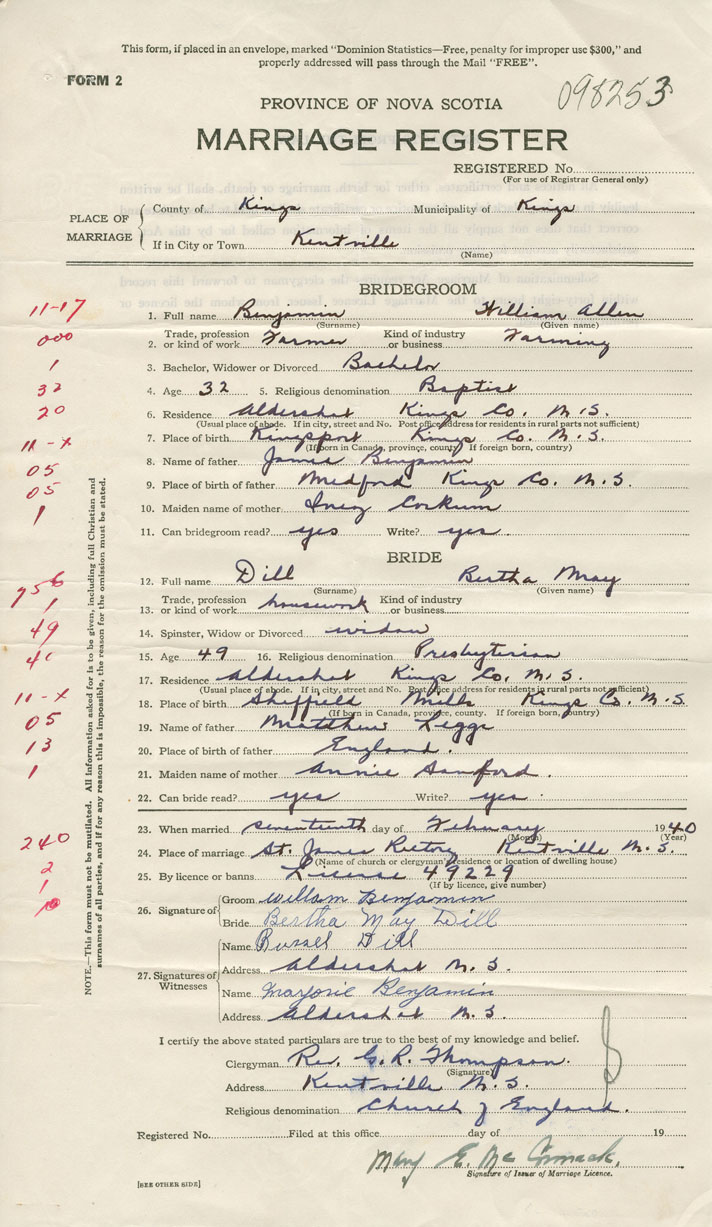 This form, if placed in an envelope, marked "Dominion Statistics—Free, penalty for improper use $300," and
properly addressed will pass through the Mail "FREE".
FORM 2
098253
PROVINCE OF NOVA SCOTIA
MARRIAGE REGISTER
REGISTERED No.
(For use of Registrar General only)
PLACE OF MARRIAGE
County of Kings Municipality of Kings
If in City or Town Kentville
(Name)
BRIDEGROOM
11-17 1. Full name Benjamin William Allen
(Surname) (Given name)
000 2. Trade, profession or kind of work Farmer Kind of industry or business Farming
1 3. Bachelor, Widower or Divorced Bachelor
32 4. Age 32 5. Religious denomination Baptist
20 6. Residence Aldershot Kings Co. N.S.
(Usual place of abode. If in city, street and No. Post office address for residents in rural parts not sufficient)
11-x 7. Place of birth Kingsport Kings Co. N.S.
(If born in Canada, province, county. If foreign born, country)
05 8. Name of father James Benjamin
05 9. Place of birth of father Medford Kings Co. N.S.
1 10. Maiden name of mother Inez Corkum
11. Can bridegroom read? yes Write? yes
BRIDE
12. Full name Dill Bertha May
(Surname) (Given name)
1 13. Trade, profession or kind of work housework Kind of industry or business
49 14. Spinster, Widow or Divorced widow
15. Age 49 16. Religious denomination Presbyterian
17. Residence Aldershot Kings Co. N.S.
(Usual place of abode. If in city, street and No. Post office address for residents in rural parts not sufficient)
11-x 18. Place of birth Sheffield Mills Kings Co. N.S
(If born in Canada, province, county. If foreign born, country)
05 19. Name of father Matthew Legge
13 20. Place of birth of father England.
1 21. Maiden name of mother Annie Sanford.
22. Can bride read? yes Write? yes.
23. When married seventeenth day of February 1940
(Month) (Year)
240 24. Place of marriage St. James Rectory Kentville N.S.
(Name of church or clergyman's residence or location of dwelling house)
2 25. By licence or banns License 49229
(If by licence, give number)
1
10
26. Signature of
Groom William Benjamin
Bride Bertha May Dill
27. Signatures of Witnesses
Name Russel Dill
Address Aldershot N.S.
Name Marjorie Benjamin
Address Aldershot N.S.
NOTE.—This form must not be mutilated. All information asked for is to be given, including full Christian and
surnames of all parties, and if for any reason this is impossible, the reason for the omission must be stated.
I certify the above stated particulars are true to the best of my knowledge and belief.
Clergyman Rev. G. R. Thompson.
(Signature)
Address Kentville N.S.
Religious denomination Church of England.
Registered No. Filed at this office day of 19
Mary E. McCormack.
Signature of Issuer of Marriage Licence.
[SEE OTHER SIDE]